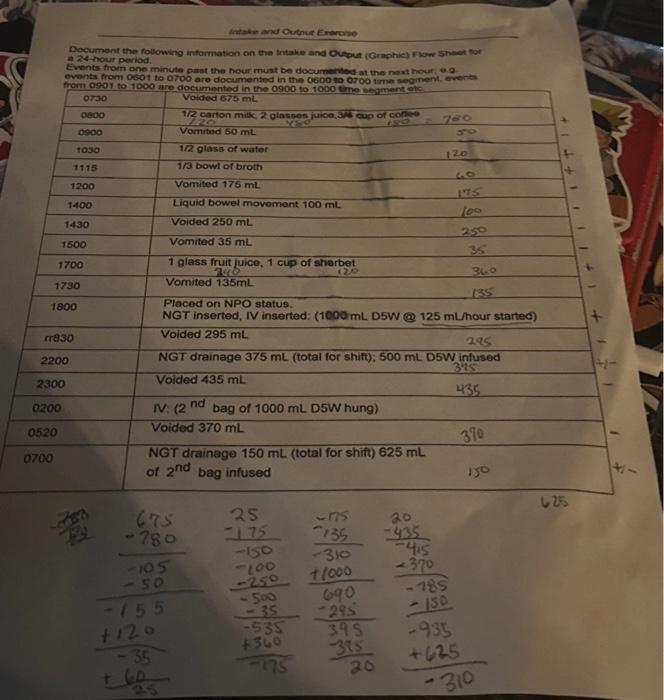 Intake and Output Exercise
Document the following information on the Intake and Output (Graphic) Flow Sheet for
a 24-hour period.
Events from one minute past the hour must be documented at the next hour; e.g.
events from 0601 to 0700 are documented in the 0600 to 0700 time segment, events
from 0901 to 1000 are documented in the 0900 to 1000 time segment etc.
0730 Voided 675 mL
0800 1/2 carton milk, 2 glasses juice, 3/4 cup of coffee +
120 480 180 = 780
0900 Vomited 50 mL 50 -
1030 1/2 glass of water 120 +
1115 1/3 bowl of broth 60 +
1200 Vomited 175 mL 175 -
1400 Liquid bowel movement 100 mL 100 -
1430 Voided 250 mL 250 -
1500 Vomited 35 mL 35 -
1700 1 glass fruit juice, 1 cup of sherbet +
240 120 360
1730 Vomited 135mL 135 -
1800 Placed on NPO status.
NGT inserted, IV inserted: (1000 mL D5W @ 125 mL/hour started) +
rr830 Voided 295 mL 295 -
2200 NGT drainage 375 mL (total for shift); 500 mL D5W infused +/-
375
2300 Voided 435 mL 435 -
0200 IV: (2nd bag of 1000 mL D5W hung)
0520 Voided 370 mL 370 -
0700 NGT drainage 150 mL (total for shift) 625 mL
of 2nd bag infused 150 +/-
625
675 25 -175 20
-780 -175 -135 -435
-105 -150 -310 -415
-50 -100 +1000 -370
-155 -250 690 -785
+120 -500 -295 -150
-35 -35 395 -935
+60 -535 -375 +625
25 +360 20 -310
-175